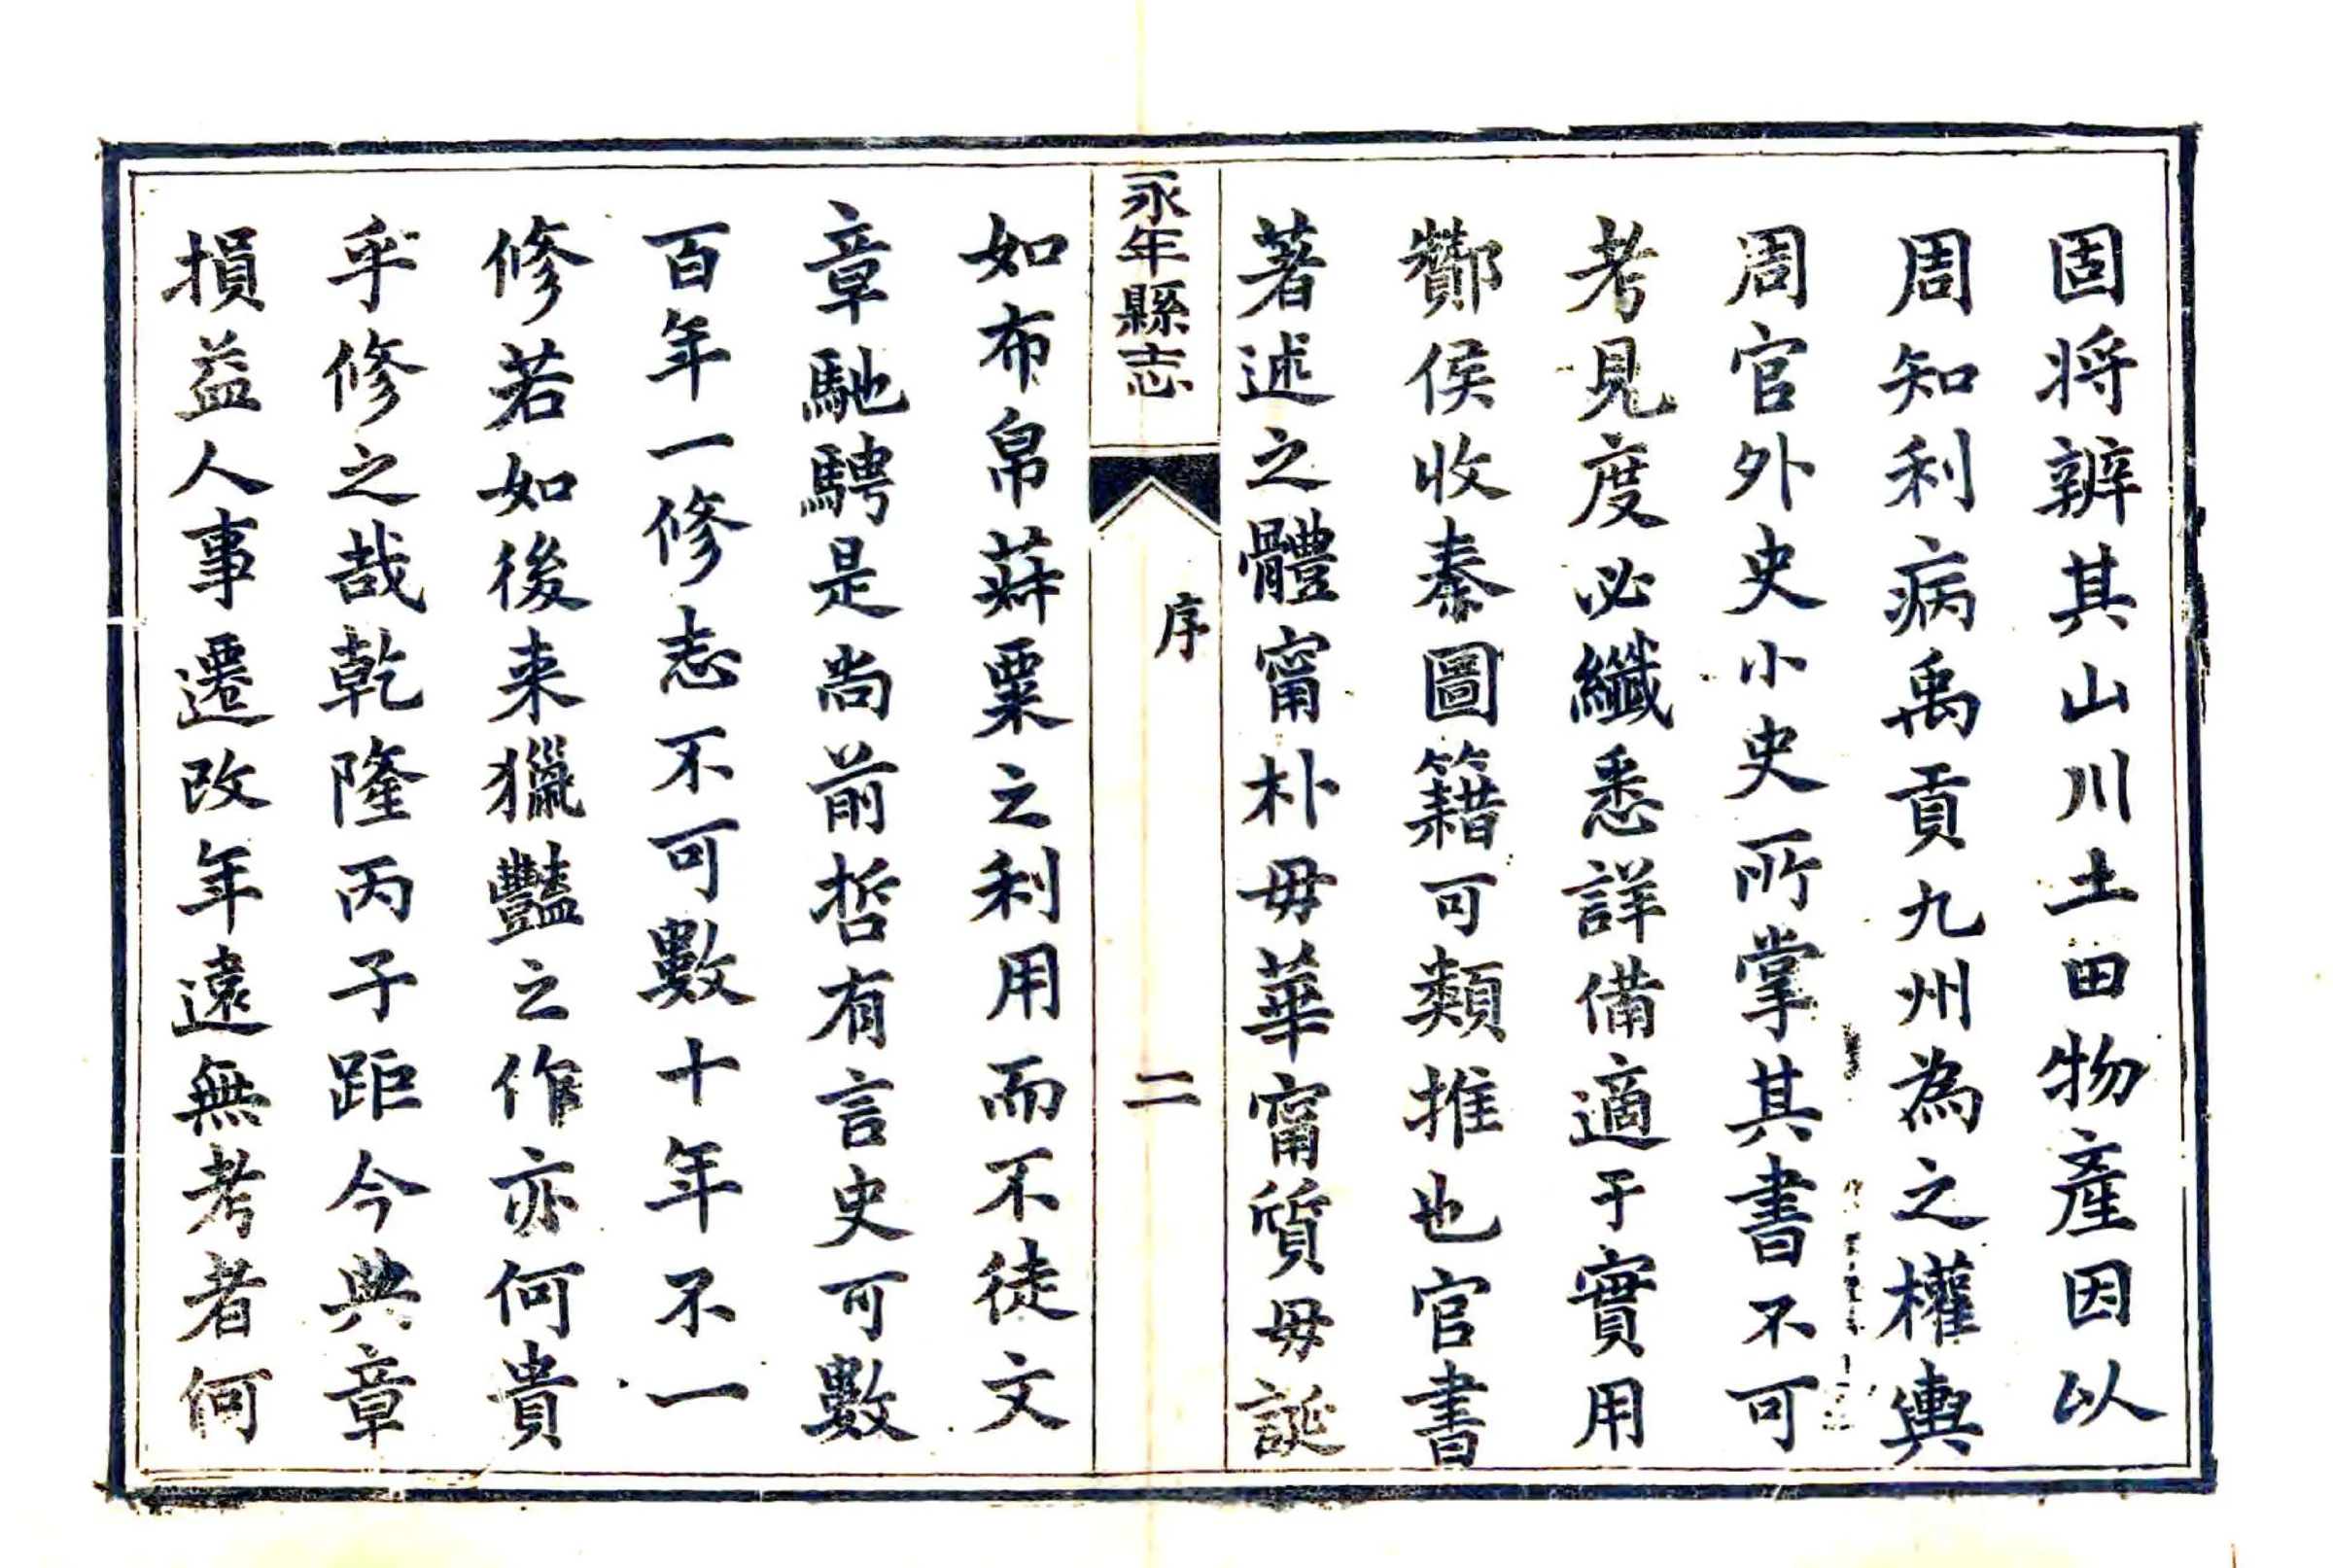 固将辨其山川土田物産因以
周知利病禹貢九州為之權輿
周官外史小史所掌其書不可
考見度必纖悉詳備適于實用
酇侯收秦圖籍可類推也官書
著述之體甯朴毋華甯質毋誕
永年縣志
序
二
如布帛菽粟之利用而不徒文
章馳騁是尚前哲有言史可數
百年一修志不可數十年不一
修若如後来獵豔之作亦何貴
乎修之哉乾隆丙子距今典章
損益人事遷改年遠無考者何